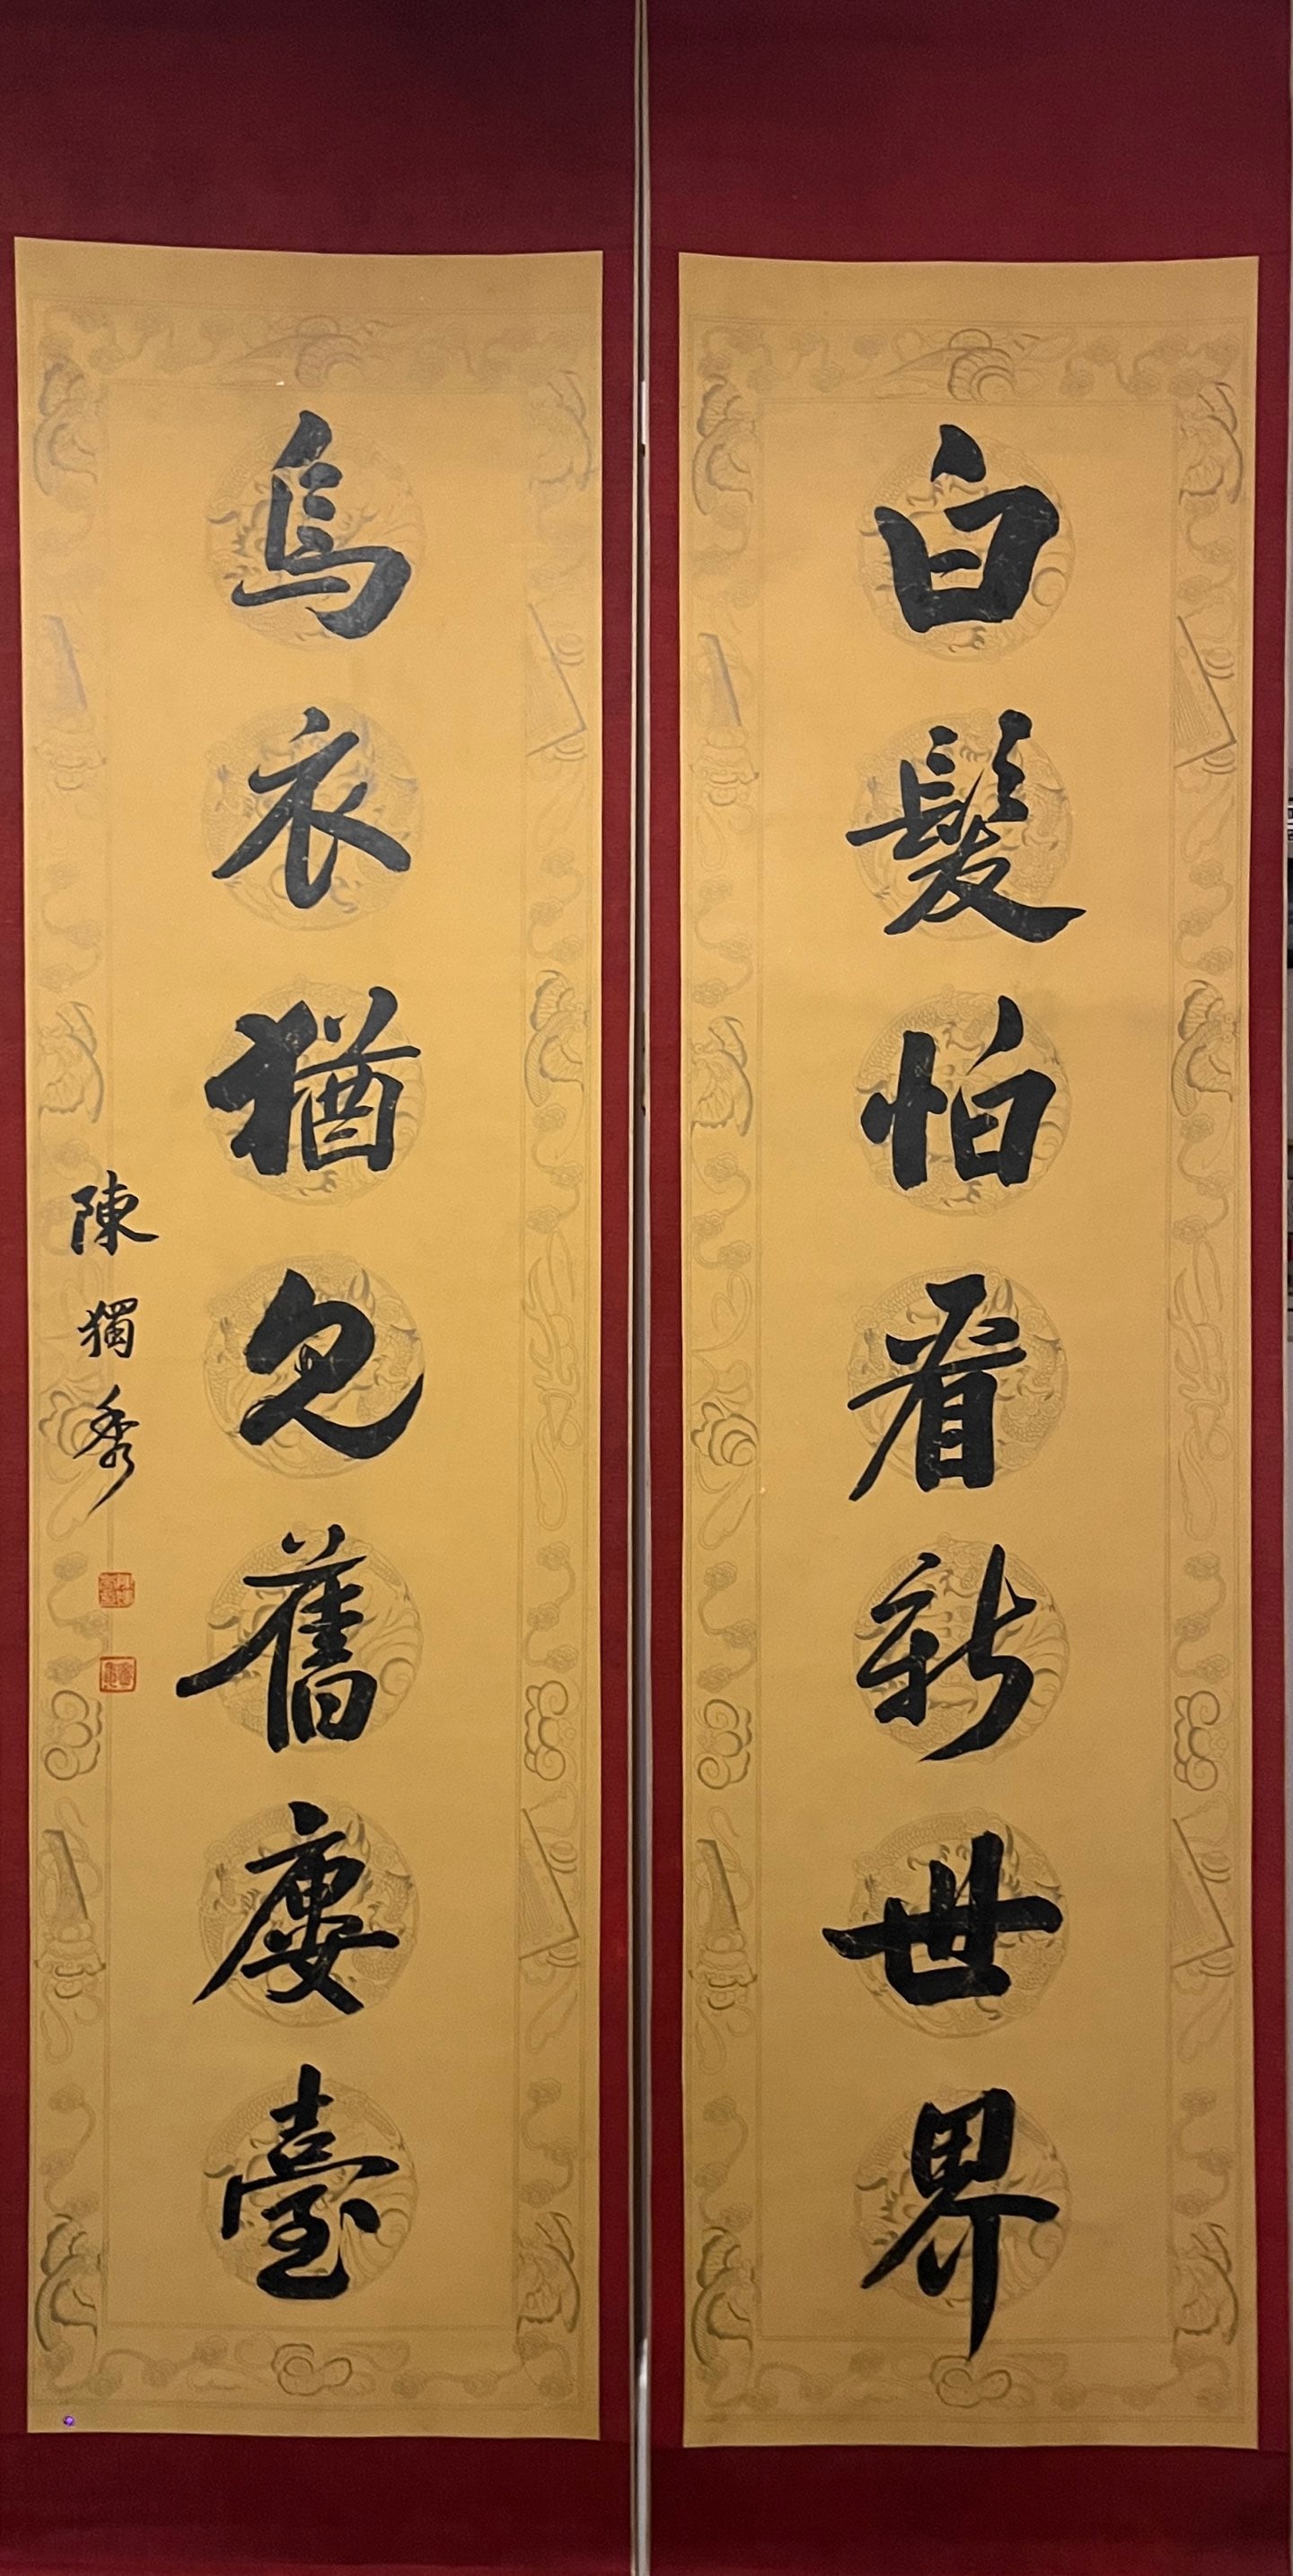 白髮怕看新世界
烏衣猶見舊樓臺
陳獨秀